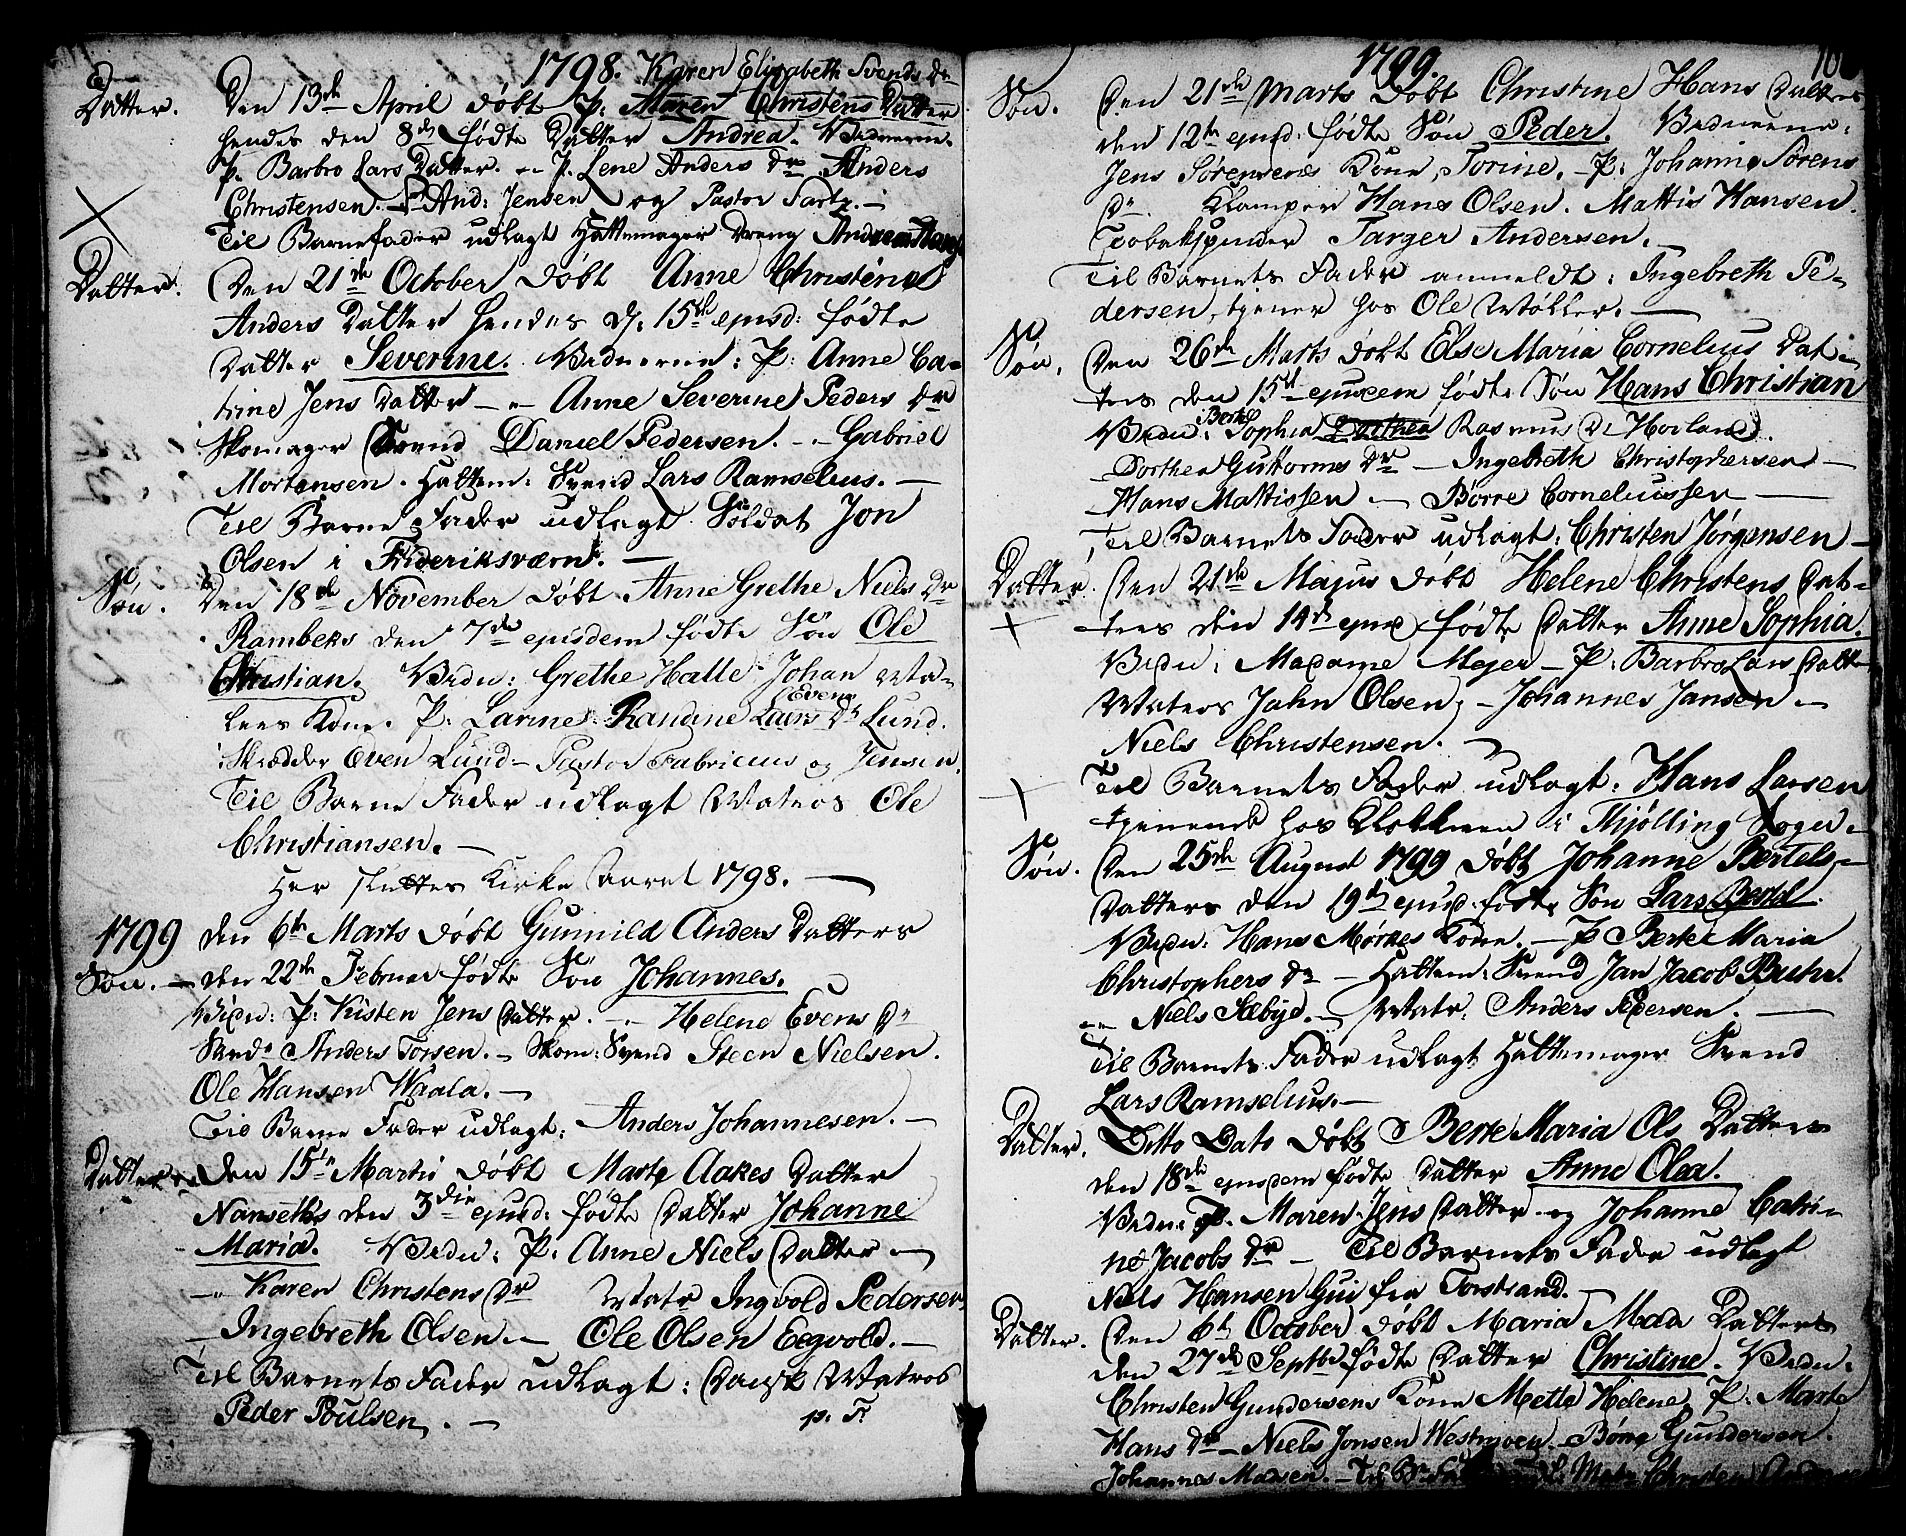 1798. Karen Elizabeth Svends Dr
Datter. Den 13de April døbt P. Maren Christens Datter
hendes den 8de fødte Datter Andrea. Vidnerne.
P. Barbro Lars Datter. — P. Lene Anders Dr Anders
Christensen. — And: Jensen og Pastor
Til Barnefader udlagt Hattemager Dreng
Datter. Den 21de October døbt Anne Christine
Anders Datter hendes d. 15de ejusd: fødte
Datter Severine. Vidnerne: P. Anne Ca-
trine Jens Datter — Anne Severine Peders Dr
Skomager Svend Daniel Pedersen. — Gabriel
Mortensen. Hattem: Svend Lars Ramselius. —
Til Barne Fader udlagt Soldat Jon
Olsen i Frideriksværn. —
Søn. Den 18de November døbt Anne Grethe Niels Dr
Rambeks den 7de ejusdem fødte Søn Ole
Christian. Vidn: Grethe Halle Johan
Kone. P. Larine Randine Evens Lars Dr Lund.
Skrædder Even Lund — Pastor Fabricius og Jensen.
Til Barne Fader udlagt Matros Ole
Christiansen. —
Her sluttes Kirke Aaret 1798. —
1799 den 6te Marts døbt Gunnild Anders Datters
Søn. — den 22de Februar fødte Søn Johannes.
Vidn: P. Kisten Jens Datter. — Helene Evens Dr
Anders Torsen. — Skom: Svend Steen Nielsen.
Ole Hansen Waala. —
Til Barne Fader udlagt: Anders Johannesen. —
Datter. Den 15de Martii døbt Marte Aakes Datter
Nanseths den 3die ejusd: fødte Datter Johanne
Maria. Vidn: P. Anne Niels Datter —
— Karen Christens Dr Matr Ingvold Pedersen
— Ingebreth Olsen. — Ole Olsen Eegvold. —
Til Barnets Fader udlagt: Dansk Matros
Peder Poulsen. — p. T.
1799.
Søn. Den 21de Marts døbt Christine Hans Datters
den 12te ejusd: fødte Søn Peder. Vidnerne:
Jens Sørensens Kone, Torine. — P. Johanne Sørens
Dr. Klamper Hans Olsen. Mattis Hansen.
Tobakspinder Targer Andersen. —
Til Barnets Fader anmeldt: Ingebreth Pe-
dersen, tjener hos Ole Møller. —
Søn. Den 26de Marts døbt Else Maria Cornelius Dat-
ters den 15de ejusdem fødte Søn Hans Christian
Vidn: Berte Sophia Dorthea Rasmus Dr Hovland.
Dorthea Guttorms Dr — Ingebreth Christophersen —
Hans Mattissen — Børre Corneliussen —
Til Barnets Fader udlagt: Christen Jørgensen —
Datter. Den 21de Majus døbt Helene Christens Dat-
ters den 14de ejusd fødte Datter Anne Sophia.
Vidn: Madame Mejer — P. Barbro Lars Datter
Matros Jahn Olsen, — Johannes Jansen —
Niels Christensen. —
Til Barnets Fader udlagt: Hans Larsen
tjenende hos Klokkeren i Thjølling Sogn.
Søn. Den 25de August 1799 døbt Johanne Bertels
Datters den 19de ejusd fødte Søn Lars Bertel.
Vidn: Hans Mørkes Kone. — P. Berte Maria
Christophers Dr — Hattem: Svend Jan Jacob Buhn.
— Niels Sæbye. — Matr. Anders Pedersen. —
Til Barnets Fader udlagt Hattemager Svend
Lars Ramselius. —
Datter. Ditto Dato døbt Berte Maria Ols Datters
den 18de ejusdem fødte Datter Anne Olea.
Vidn: P. Maren Jens Datter og Johanne Catri-
ne Jacobs Dr — Til Barnets Fader udlagt
Niels Hansen Gui fra Torstrand. —
Datter. Den 6te October døbt Maria Mads Datters
den 27de Septbr fødte Datter Christine. Vidn:
Christen Gundersens Kone Mette Helene, P. Marte
Hans Dr — Niels Jonsen Westmoen — Børre Gundersen.
Johannes Madsen. — Til Matr Christen